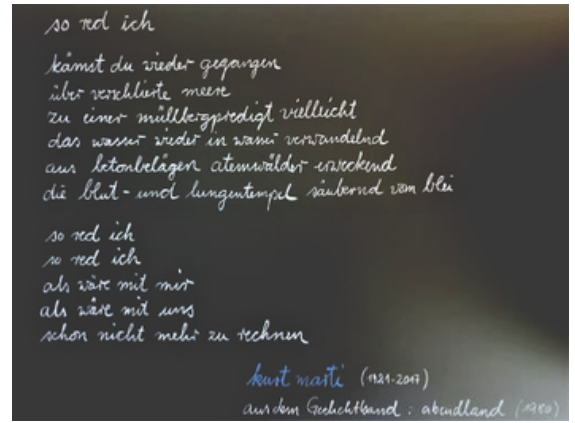 so red ich
kämst du wieder gegangen
über verschlierte meere
zu einer müllbergpredigt vielleicht
das wasser wieder in wasser verwandelnd
aus betonbelägen atemwälder erweckend
die blut- und lungentempel säubernd vom blei
so red ich
so red ich
als wäre mit mir
als wäre mit uns
schon nicht mehr zu rechnen
kurt marti (1921-2017)
aus dem Gedichtband: abendland (1980)